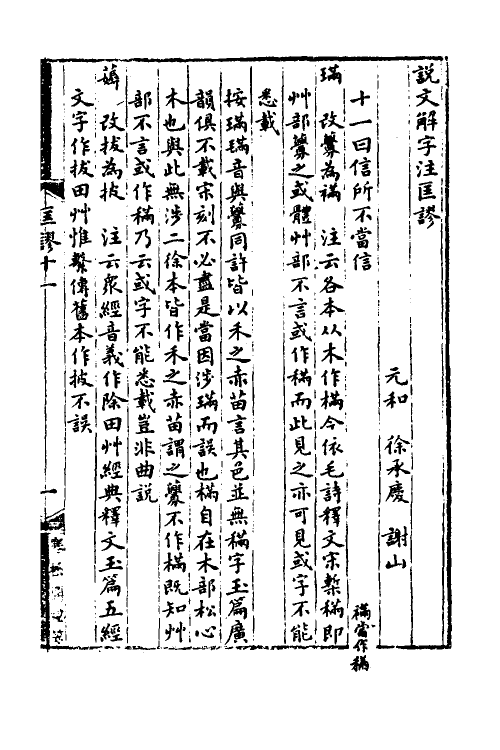 說文解字注匡謬
元和　徐承慶　謝山
十一曰信所不當信
璊　改虋為䅼　注云各本从木作樠今依毛詩釋文宋槧䅼即
艸部虋之或體艸部不言或作䅼而此見之亦可見或字不能
悉載
按璊璊音與虋同許皆以禾之赤苗言其色並無䅼字玉篇廣
韻俱不載宋刻不必盡是當因涉璊而誤也樠自在木部松心
木也與此無涉二徐本皆作禾之赤苗謂之虋不作樠既知艸
部不言或作䅼乃云或字不能悉載豈非曲說
薅　改拔為披　注云眾經音義作除田艸經典釋文玉篇五經
文字作拔田艸惟繫傳舊本作披不誤
匡謬十一
一
當作䅼